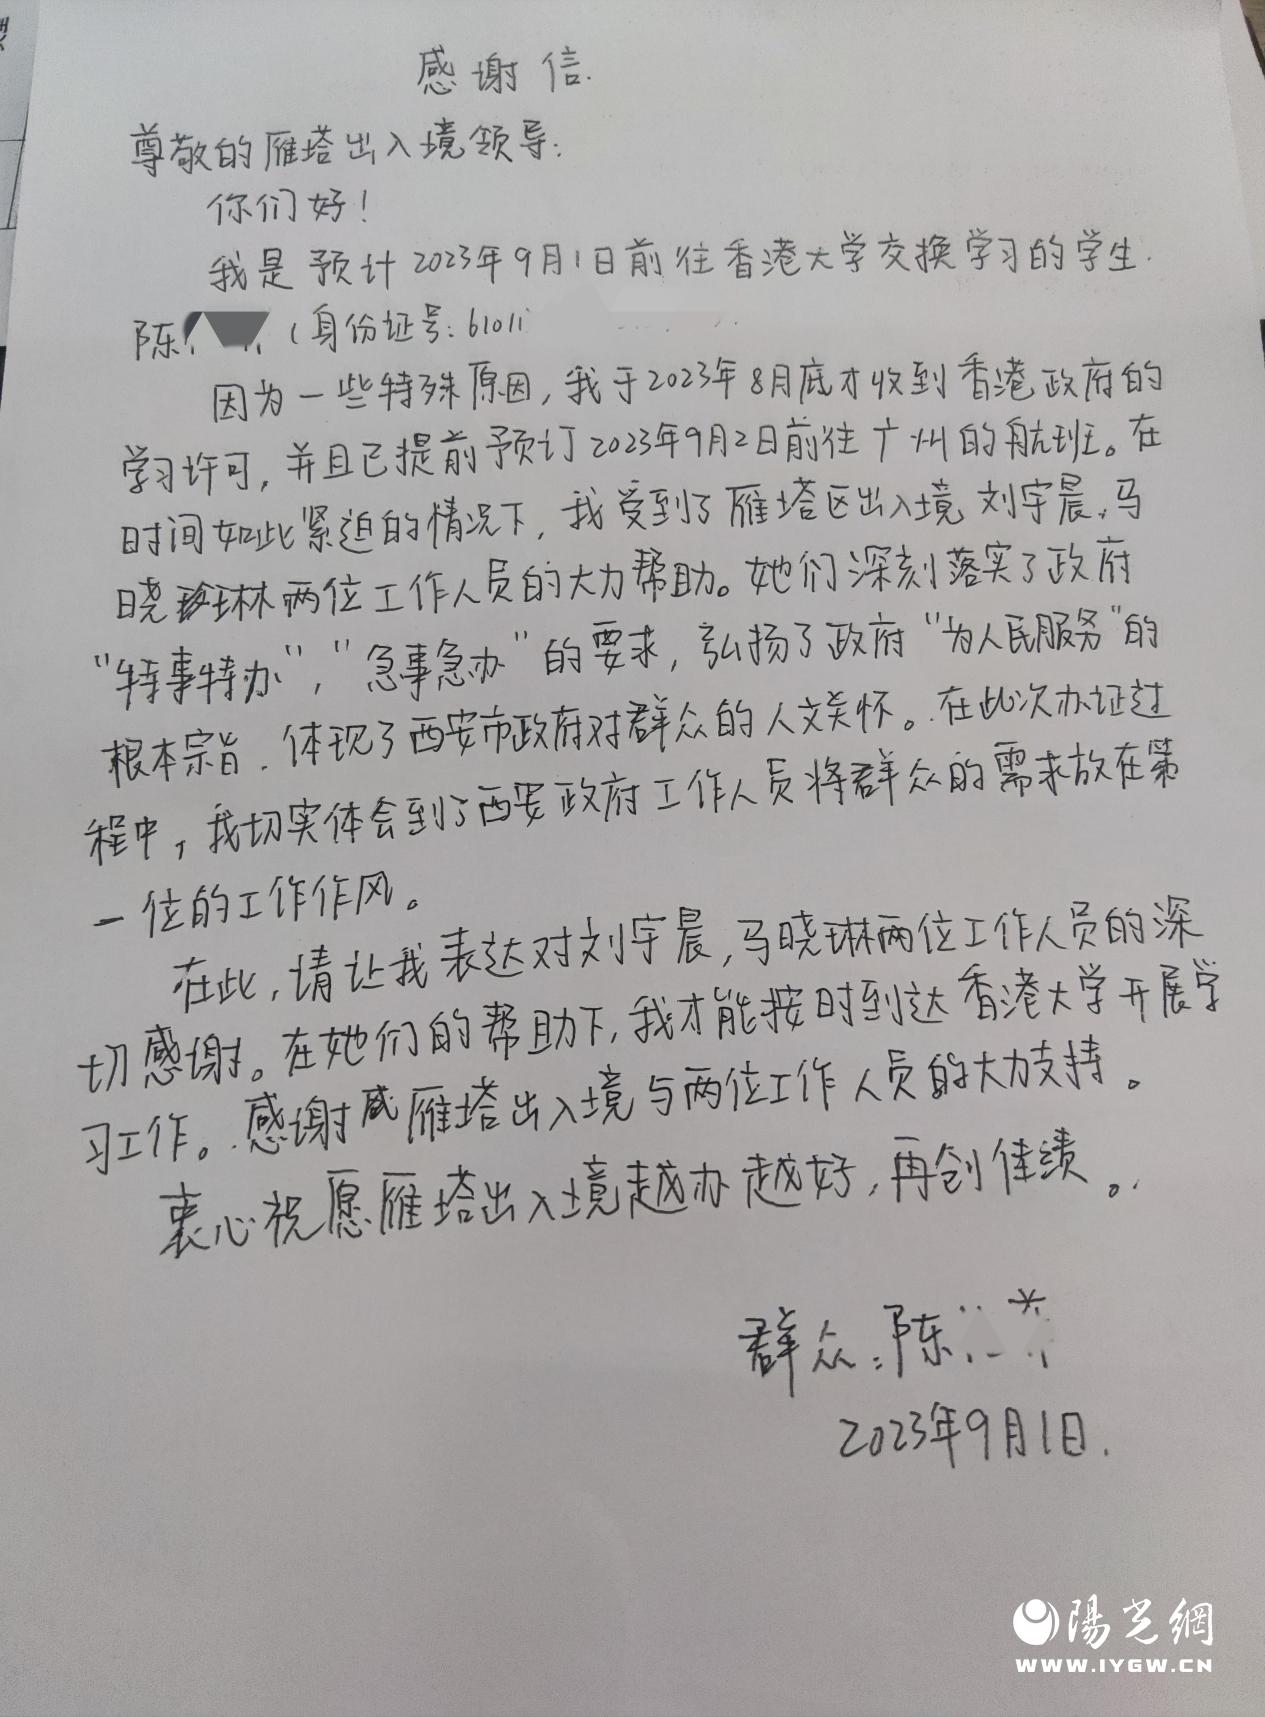 感谢信.
尊敬的雁塔出入境领导:
你们好!
我是预计2023年9月1日前往香港大学交换学习的学生.
陈 (身份证号:61011
因为一些特殊原因,我于2023年8月底才收到香港政府的
学习许可,并且已提前预订2023年9月2日前往广州的航班。在
时间如此紧迫的情况下,我受到了雁塔区出入境刘宇晨,马
晓琳两位工作人员的大力帮助。她们深刻落实了政府
"特事特办","急事急办"的要求,弘扬了政府"为人民服务"的
根本宗旨.体现了西安市政府对群众的人文关怀。在此次办证过
程中,我切实体会到了西安政府工作人员将群众的需求放在第
一位的工作作风。
在此,请让我表达对刘宇晨,马晓琳两位工作人员的深
切感谢。在她们的帮助下,我才能按时到达香港大学开展学
习工作。感谢感雁塔出入境与两位工作人员的大力支持。
衷心祝愿雁塔出入境越办越好,再创佳绩。
群众:陈
2023年9月1日.
陽光網
WWW.IYGW.CN